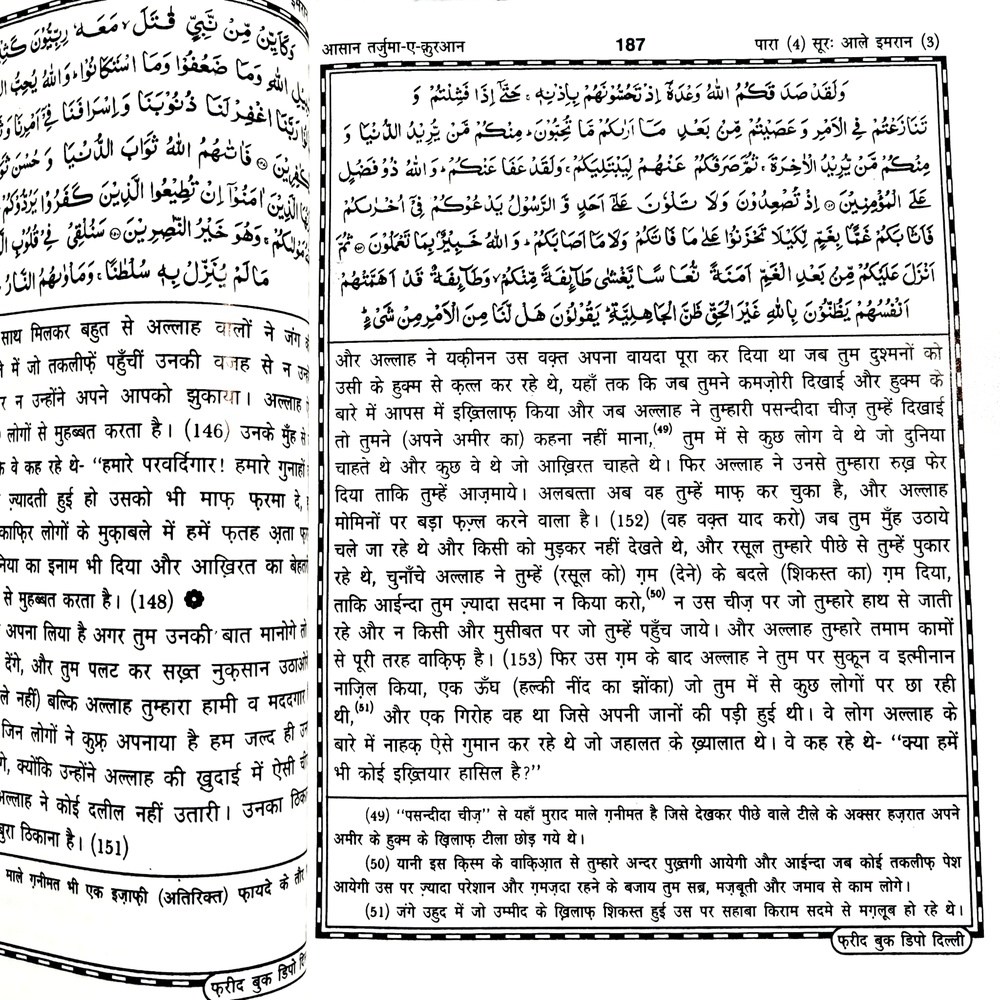 وَكَاَيِّنْ مِّنْ نَّبِيٍّ قٰتَلَ ۙ مَعَهٗ رِبِّيُّوْنَ
اللهِ وَمَا ضَعُفُوْا وَمَا اسْتَكَانُوْا ؕ وَاللهُ يُحِبُّ
رَبَّنَا اغْفِرْ لَنَا ذُنُوْبَنَا وَاِسْرَافَنَا فِيْٓ اَمْرِنَا
فَاٰتٰىهُمُ اللهُ ثَوَابَ الدُّنْيَا وَحُسْنَ
الَّذِيْنَ اٰمَنُوْٓا اِنْ تُطِيْعُوا الَّذِيْنَ كَفَرُوْا يَرُدُّوْكُمْ
وَهُوَ خَيْرُ النّٰصِرِيْنَ سَنُلْقِيْ فِيْ قُلُوْبِ
مَا لَمْ يُنَزِّلْ بِهٖ سُلْطٰنًا ۚ وَمَاْوٰىهُمُ النَّارُ
साथ मिलकर बहुत से अल्लाह वालों ने जंग
में जो तकलीफ़ें पहुँचीं उनकी वजह से न
न उन्होंने अपने आपको झुकाया। अल्लाह
लोगों से मुहब्बत करता है। (146) उनके मुँह से
वे कह रहे थे- “हमारे परवर्दिगार! हमारे गुनाहों
ज़्यादती हुई हो उसको भी माफ़ फ़रमा दे,
काफ़िर लोगों के मुक़ाबले में हमें फ़तह अ़ता
का इनाम भी दिया और आख़िरत का
से मुहब्बत करता है। (148)
अपना लिया है अगर तुम उनकी बात मानोगे तो
देंगे, और तुम पलट कर सख़्त नुक़सान
नहीं) बल्कि अल्लाह तुम्हारा हामी व
जिन लोगों ने कुफ़्र अपनाया है हम जल्द ही
क्योंकि उन्होंने अल्लाह की ख़ुदाई में ऐसी
अल्लाह ने कोई दलील नहीं उतारी। उनका
बुरा ठिकाना है। (151)
माले ग़नीमत भी एक इज़ाफ़ी (अतिरिक्त) फ़ायदे के
फ़रीद बुक डिपो
आसान तर्जुमा-ए-क़ुरआन 187 पारा (4) सूरः आले इमरान (3)
وَلَقَدْ صَدَقَكُمُ اللهُ وَعْدَهٗٓ اِذْ تَحُسُّوْنَهُمْ بِاِذْنِهٖ ۚ حَتّٰٓى اِذَا فَشِلْتُمْ وَ
تَنَازَعْتُمْ فِي الْاَمْرِ وَعَصَيْتُمْ مِّنْۢ بَعْدِ مَآ اَرٰىكُمْ مَّا تُحِبُّوْنَ ؕ مِنْكُمْ مَّنْ يُّرِيْدُ الدُّنْيَا وَ
مِنْكُمْ مَّنْ يُّرِيْدُ الْاٰخِرَةَ ۚ ثُمَّ صَرَفَكُمْ عَنْهُمْ لِيَبْتَلِيَكُمْ ۚ وَلَقَدْ عَفَا عَنْكُمْ ؕ وَاللهُ ذُوْ فَضْلٍ
عَلَى الْمُؤْمِنِيْنَ ۝ اِذْ تُصْعِدُوْنَ وَلَا تَلْوٗنَ عَلٰٓى اَحَدٍ وَّ الرَّسُوْلُ يَدْعُوْكُمْ فِيْٓ اُخْرٰىكُمْ
فَاَثَابَكُمْ غَمًّۢا بِغَمٍّ لِّكَيْلَا تَحْزَنُوْا عَلٰى مَا فَاتَكُمْ وَلَا مَآ اَصَابَكُمْ ؕ وَاللهُ خَبِيْرٌۢ بِمَا تَعْمَلُوْنَ ۝ ثُمَّ
اَنْزَلَ عَلَيْكُمْ مِّنْۢ بَعْدِ الْغَمِّ اَمَنَةً نُّعَاسًا يَّغْشٰى طَآئِفَةً مِّنْكُمْ ۙ وَطَآئِفَةٌ قَدْ اَهَمَّتْهُمْ
اَنْفُسُهُمْ يَظُنُّوْنَ بِاللهِ غَيْرَ الْحَقِّ ظَنَّ الْجَاهِلِيَّةِ ؕ يَقُوْلُوْنَ هَلْ لَّنَا مِنَ الْاَمْرِ مِنْ شَيْءٍ ؕ
और अल्लाह ने यक़ीनन उस वक़्त अपना वायदा पूरा कर दिया था जब तुम दुश्मनों को
उसी के हुक्म से क़त्ल कर रहे थे, यहाँ तक कि जब तुमने कमज़ोरी दिखाई और हुक्म के
बारे में आपस में इख़्तिलाफ़ किया और जब अल्लाह ने तुम्हारी पसन्दीदा चीज़ तुम्हें दिखाई
तो तुमने (अपने अमीर का) कहना नहीं माना,(49) तुम में से कुछ लोग वे थे जो दुनिया
चाहते थे और कुछ वे थे जो आख़िरत चाहते थे। फिर अल्लाह ने उनसे तुम्हारा रुख़ फेर
दिया ताकि तुम्हें आज़माये। अलबत्ता अब वह तुम्हें माफ़ कर चुका है, और अल्लाह
मोमिनों पर बड़ा फ़ज़्ल करने वाला है। (152) (वह वक़्त याद करो) जब तुम मुँह उठाये
चले जा रहे थे और किसी को मुड़कर नहीं देखते थे, और रसूल तुम्हारे पीछे से तुम्हें पुकार
रहे थे, चुनाँचे अल्लाह ने तुम्हें (रसूल को) ग़म (देने) के बदले (शिकस्त का) ग़म दिया,
ताकि आईन्दा तुम ज़्यादा सदमा न किया करो,(50) न उस चीज़ पर जो तुम्हारे हाथ से जाती
रहे और न किसी और मुसीबत पर जो तुम्हें पहुँच जाये। और अल्लाह तुम्हारे तमाम कामों
से पूरी तरह वाक़िफ़ है। (153) फिर उस ग़म के बाद अल्लाह ने तुम पर सुकून व इत्मीनान
नाज़िल किया, एक ऊँघ (हल्की नींद का झोंका) जो तुम में से कुछ लोगों पर छा रही
थी,(51) और एक गिरोह वह था जिसे अपनी जानों की पड़ी हुई थी। वे लोग अल्लाह के
बारे में नाहक़ ऐसे गुमान कर रहे थे जो जहालत के ख़्यालात थे। वे कह रहे थे- “क्या हमें
भी कोई इख़्तियार हासिल है?”
(49) “पसन्दीदा चीज़” से यहाँ मुराद माले ग़नीमत है जिसे देखकर पीछे वाले टीले के अक्सर हज़रात अपने
अमीर के हुक्म के ख़िलाफ़ टीला छोड़ गये थे।
(50) यानी इस क़िस्म के वाक़िआ़त से तुम्हारे अन्दर पुख़्तगी आयेगी और आईन्दा जब कोई तकलीफ़ पेश
आयेगी उस पर ज़्यादा परेशान और ग़मज़दा रहने के बजाय तुम सब्र, मज़बूती और जमाव से काम लोगे।
(51) जंगे उहुद में जो उम्मीद के ख़िलाफ़ शिकस्त हुई उस पर सहाबा किराम सदमे से मग़लूब हो रहे थे।
फ़रीद बुक डिपो दिल्ली